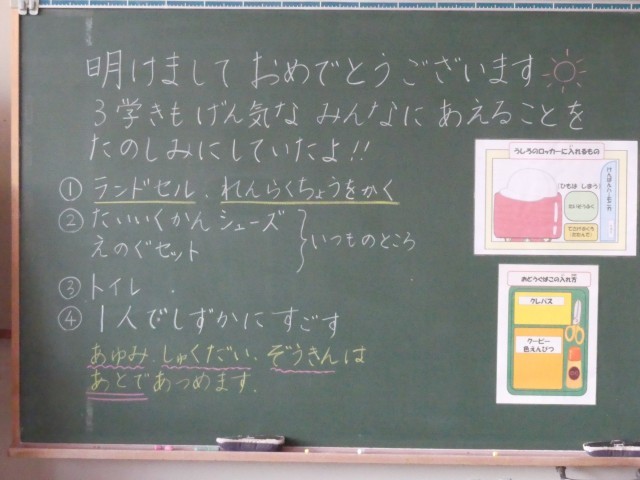 明けまして おめでとうございます
3学きも げん気な みんなに あえることを
たのしみにしていたよ!!
① ランドセル、れんらくちょうをかく
② たいいくかんシューズ
えのぐセット
いつものところ
③ トイレ
④ 1人でしずかに すごす
あゆみ、しゅくだい、ぞうきんは
あとで あつめます。
うしろのロッカーに入れるもの
けんばんハーモニカ
ひもは しまう!
おどうぐばこの入れ方
クレパス
クーピー
色えんぴつ